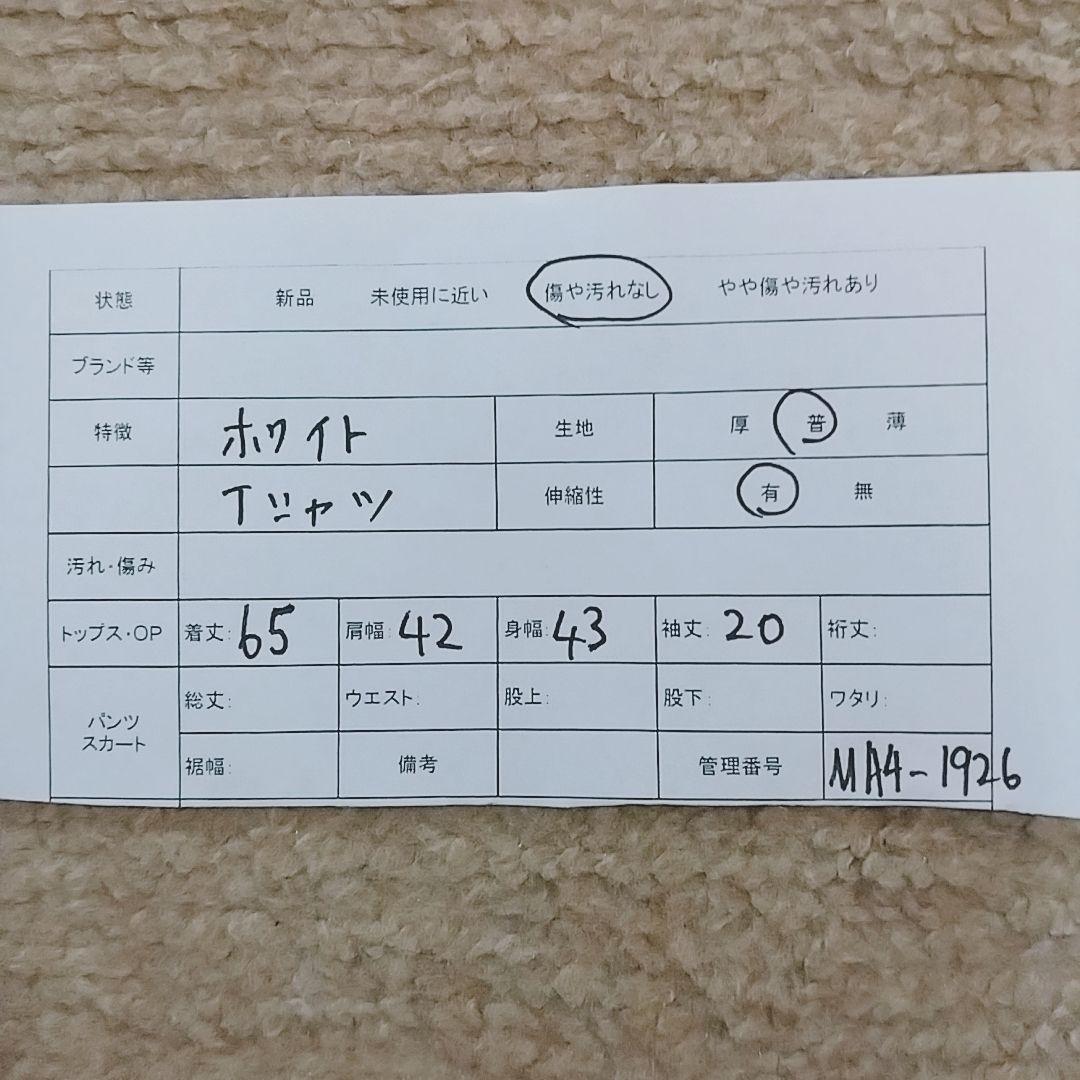 状態 新品 未使用に近い 傷や汚れなし やや傷や汚れあり
ブランド等
特徴 ホワイト 生地 厚 普 薄
Tシャツ 伸縮性 有 無
汚れ・傷み
トップス・OP 着丈: 65 肩幅: 42 身幅: 43 袖丈: 20 裄丈:
パンツ
スカート
総丈: ウエスト: 股上: 股下: ワタリ:
裾幅: 備考 管理番号 MA4-1926